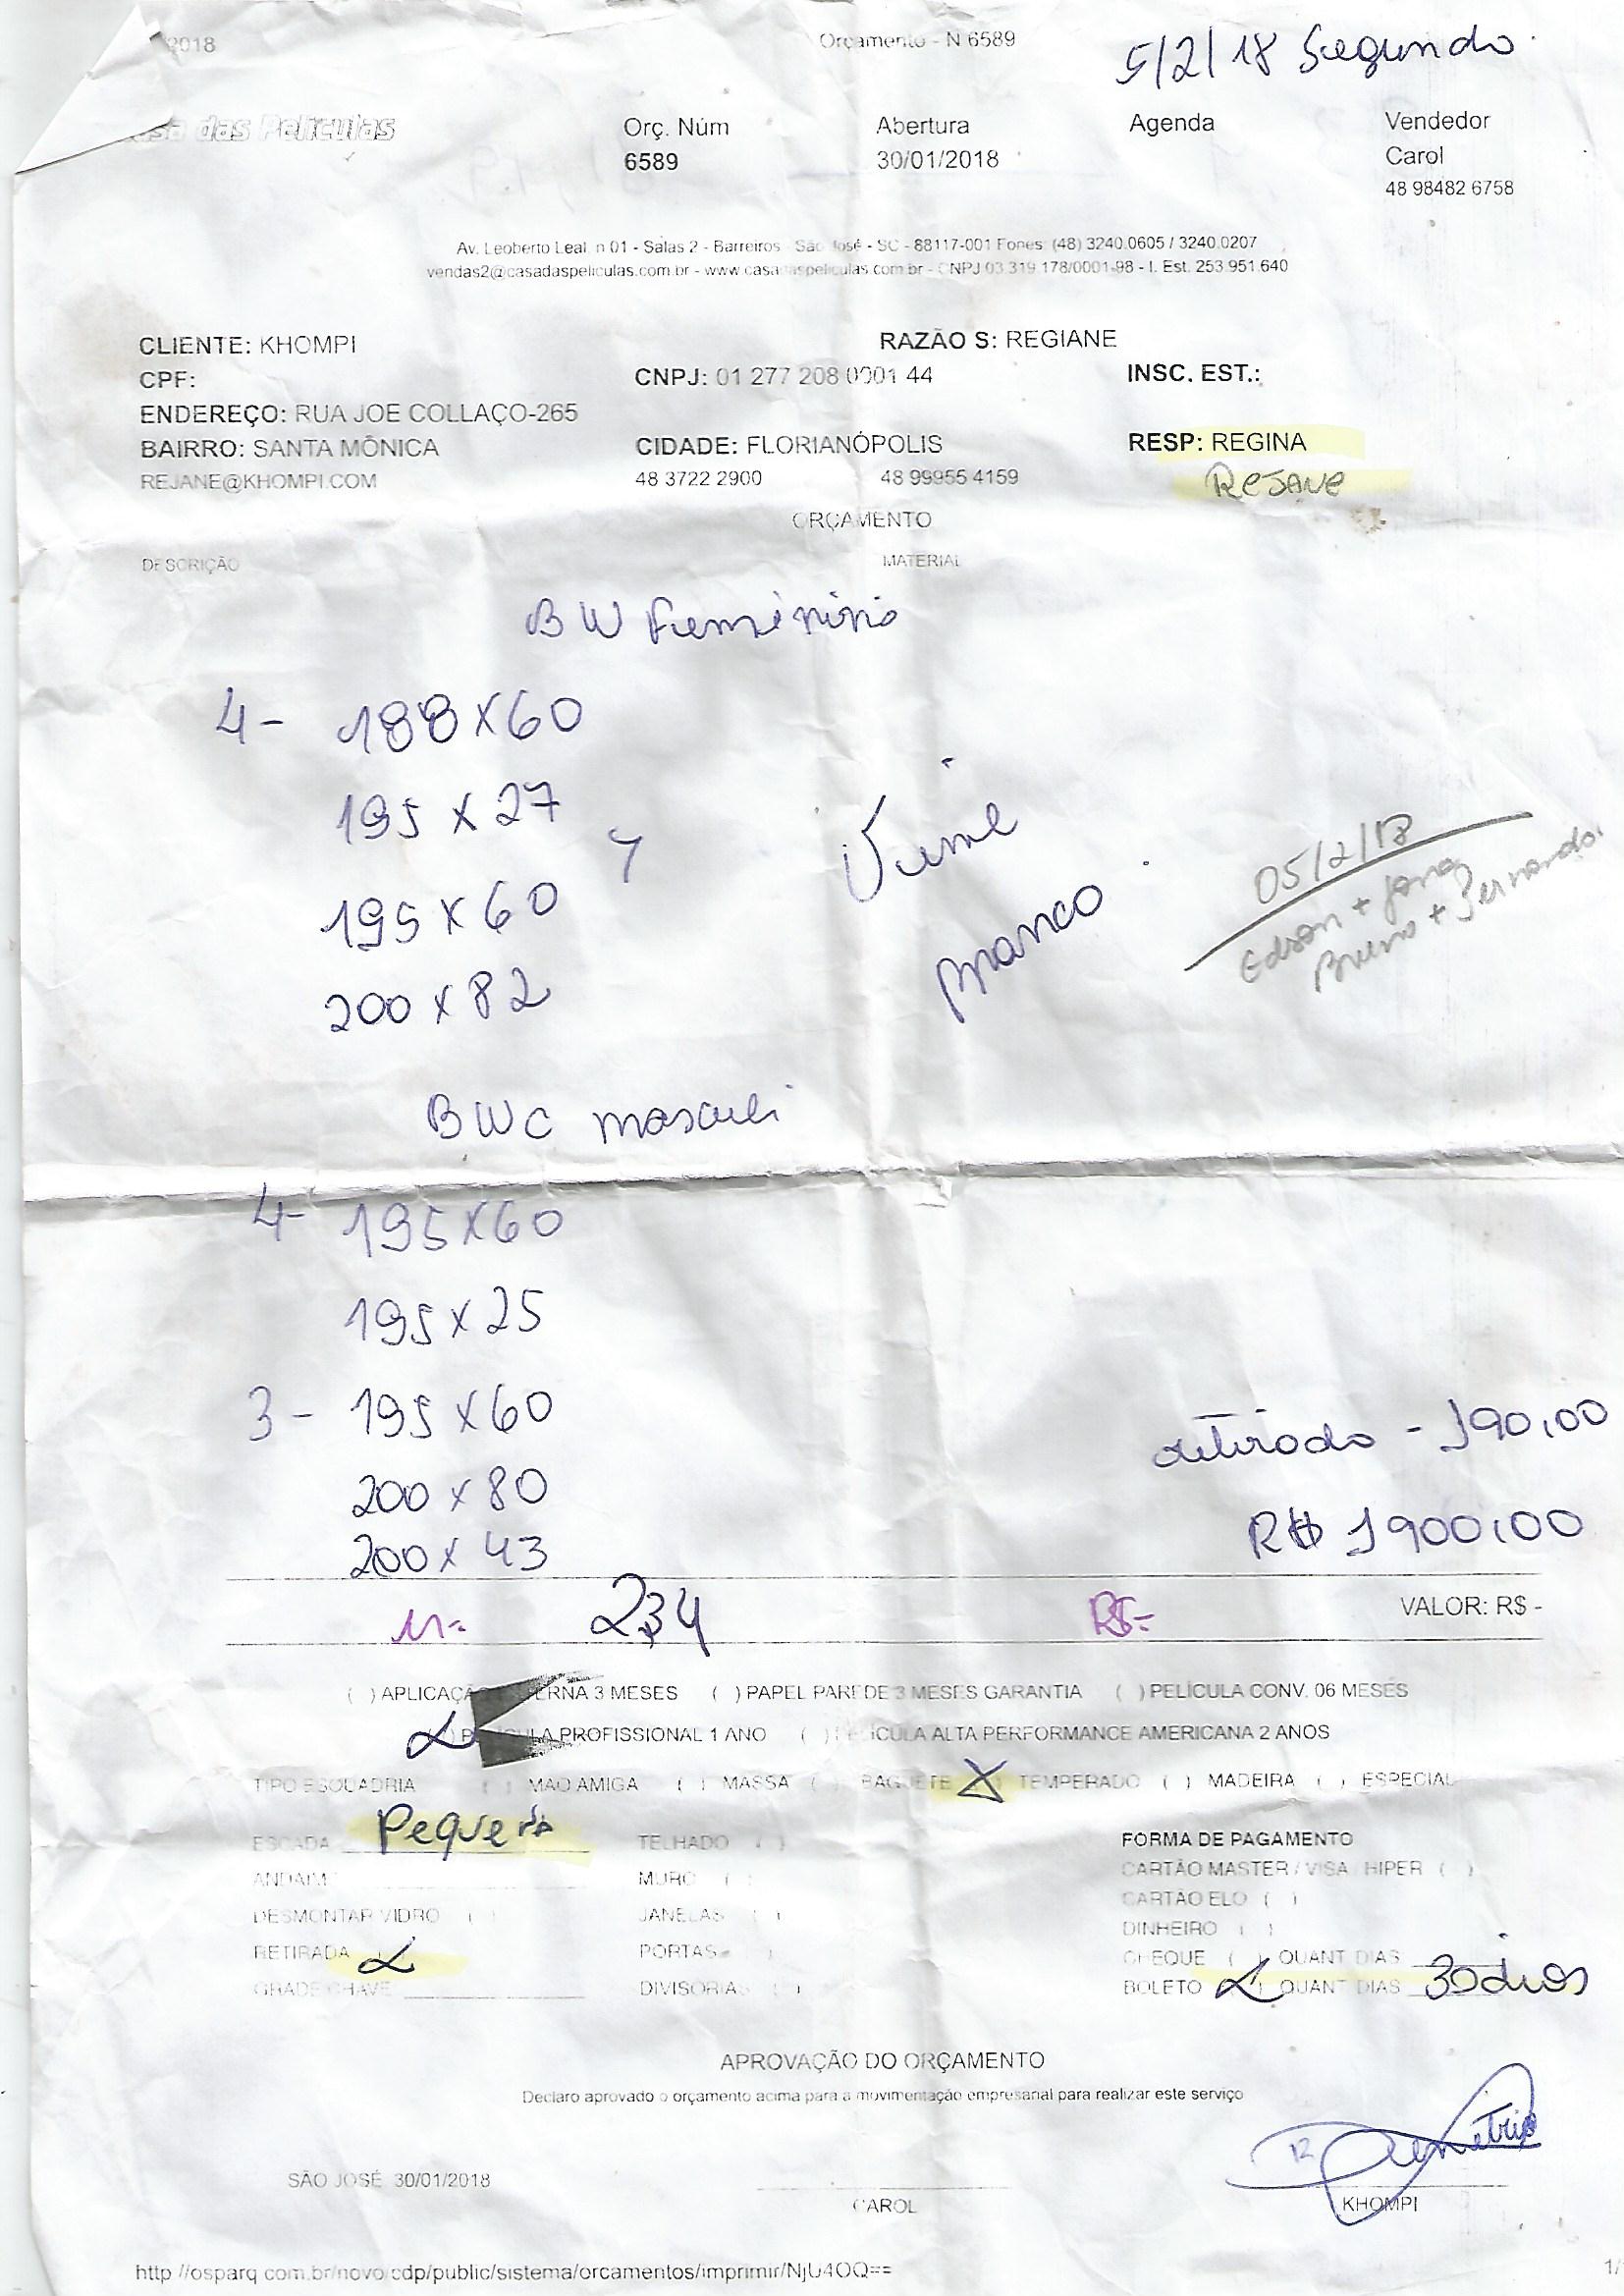 2018 Orçamento - N 6589
5/2/18 Segundo
asa das Películas
Orç. Núm Abertura Agenda Vendedor
6589 30/01/2018 Carol
48 98482 6758
Av. Leoberto Leal, n 01 - Salas 2 - Barreiros - São José - SC - 88117-001 Fones: (48) 3240.0605 / 3240.0207
vendas2@casadaspeliculas.com.br - www.casadaspeliculas.com.br - CNPJ 03.319.178/0001-98 - I. Est. 253.951.640
CLIENTE: KHOMPI RAZÃO S: REGIANE
CPF: CNPJ: 01 277 208 0001 44 INSC. EST.:
ENDEREÇO: RUA JOE COLLAÇO-265
BAIRRO: SANTA MÔNICA CIDADE: FLORIANÓPOLIS RESP: REGINA
REJANE@KHOMPI.COM 48 3722 2900 48 99955 4159 REJANE
ORÇAMENTO
DESCRIÇÃO MATERIAL
BW Feminino
4- 188x60
195 x 27
195 x 60
200 x 82
branco
05/2/18
Edson +
Bruno + Fernando
BWC masculi
4- 195x60
195 x 25
3- 195 x 60
200 x 80
200 x 43
retirada - 190,00
R$ 1900,00
234 R$- VALOR: R$ -
( ) APLICAÇÃO ERNA 3 MESES ( ) PAPEL PAREDE 3 MESES GARANTIA ( ) PELÍCULA CONV. 06 MESES
X PELÍCULA PROFISSIONAL 1 ANO ( ) PELÍCULA ALTA PERFORMANCE AMERICANA 2 ANOS
TIPO ESQUADRIA ( ) MÃO AMIGA ( ) MASSA ( ) BAGUETE X TEMPERADO ( ) MADEIRA ( ) ESPECIAL
ESCADA Pequena TELHADO ( ) FORMA DE PAGAMENTO
ANDAIME MURO ( ) CARTÃO MASTER / VISA / HIPER ( )
DESMONTAR VIDRO ( ) JANELAS ( ) CARTÃO ELO ( )
DINHEIRO ( )
RETIRADA X PORTAS ( ) CHEQUE ( ) QUANT DIAS
GRADE CHAVE DIVISORIA ( ) BOLETO X QUANT DIAS 30 dias
APROVAÇÃO DO ORÇAMENTO
Declaro aprovado o orçamento acima para a movimentação empresarial para realizar este serviço
SÃO JOSÉ 30/01/2018
CAROL KHOMPI
http://osparq.com.br/novo/cdp/public/sistema/orcamentos/imprimir/NjU4OQ==